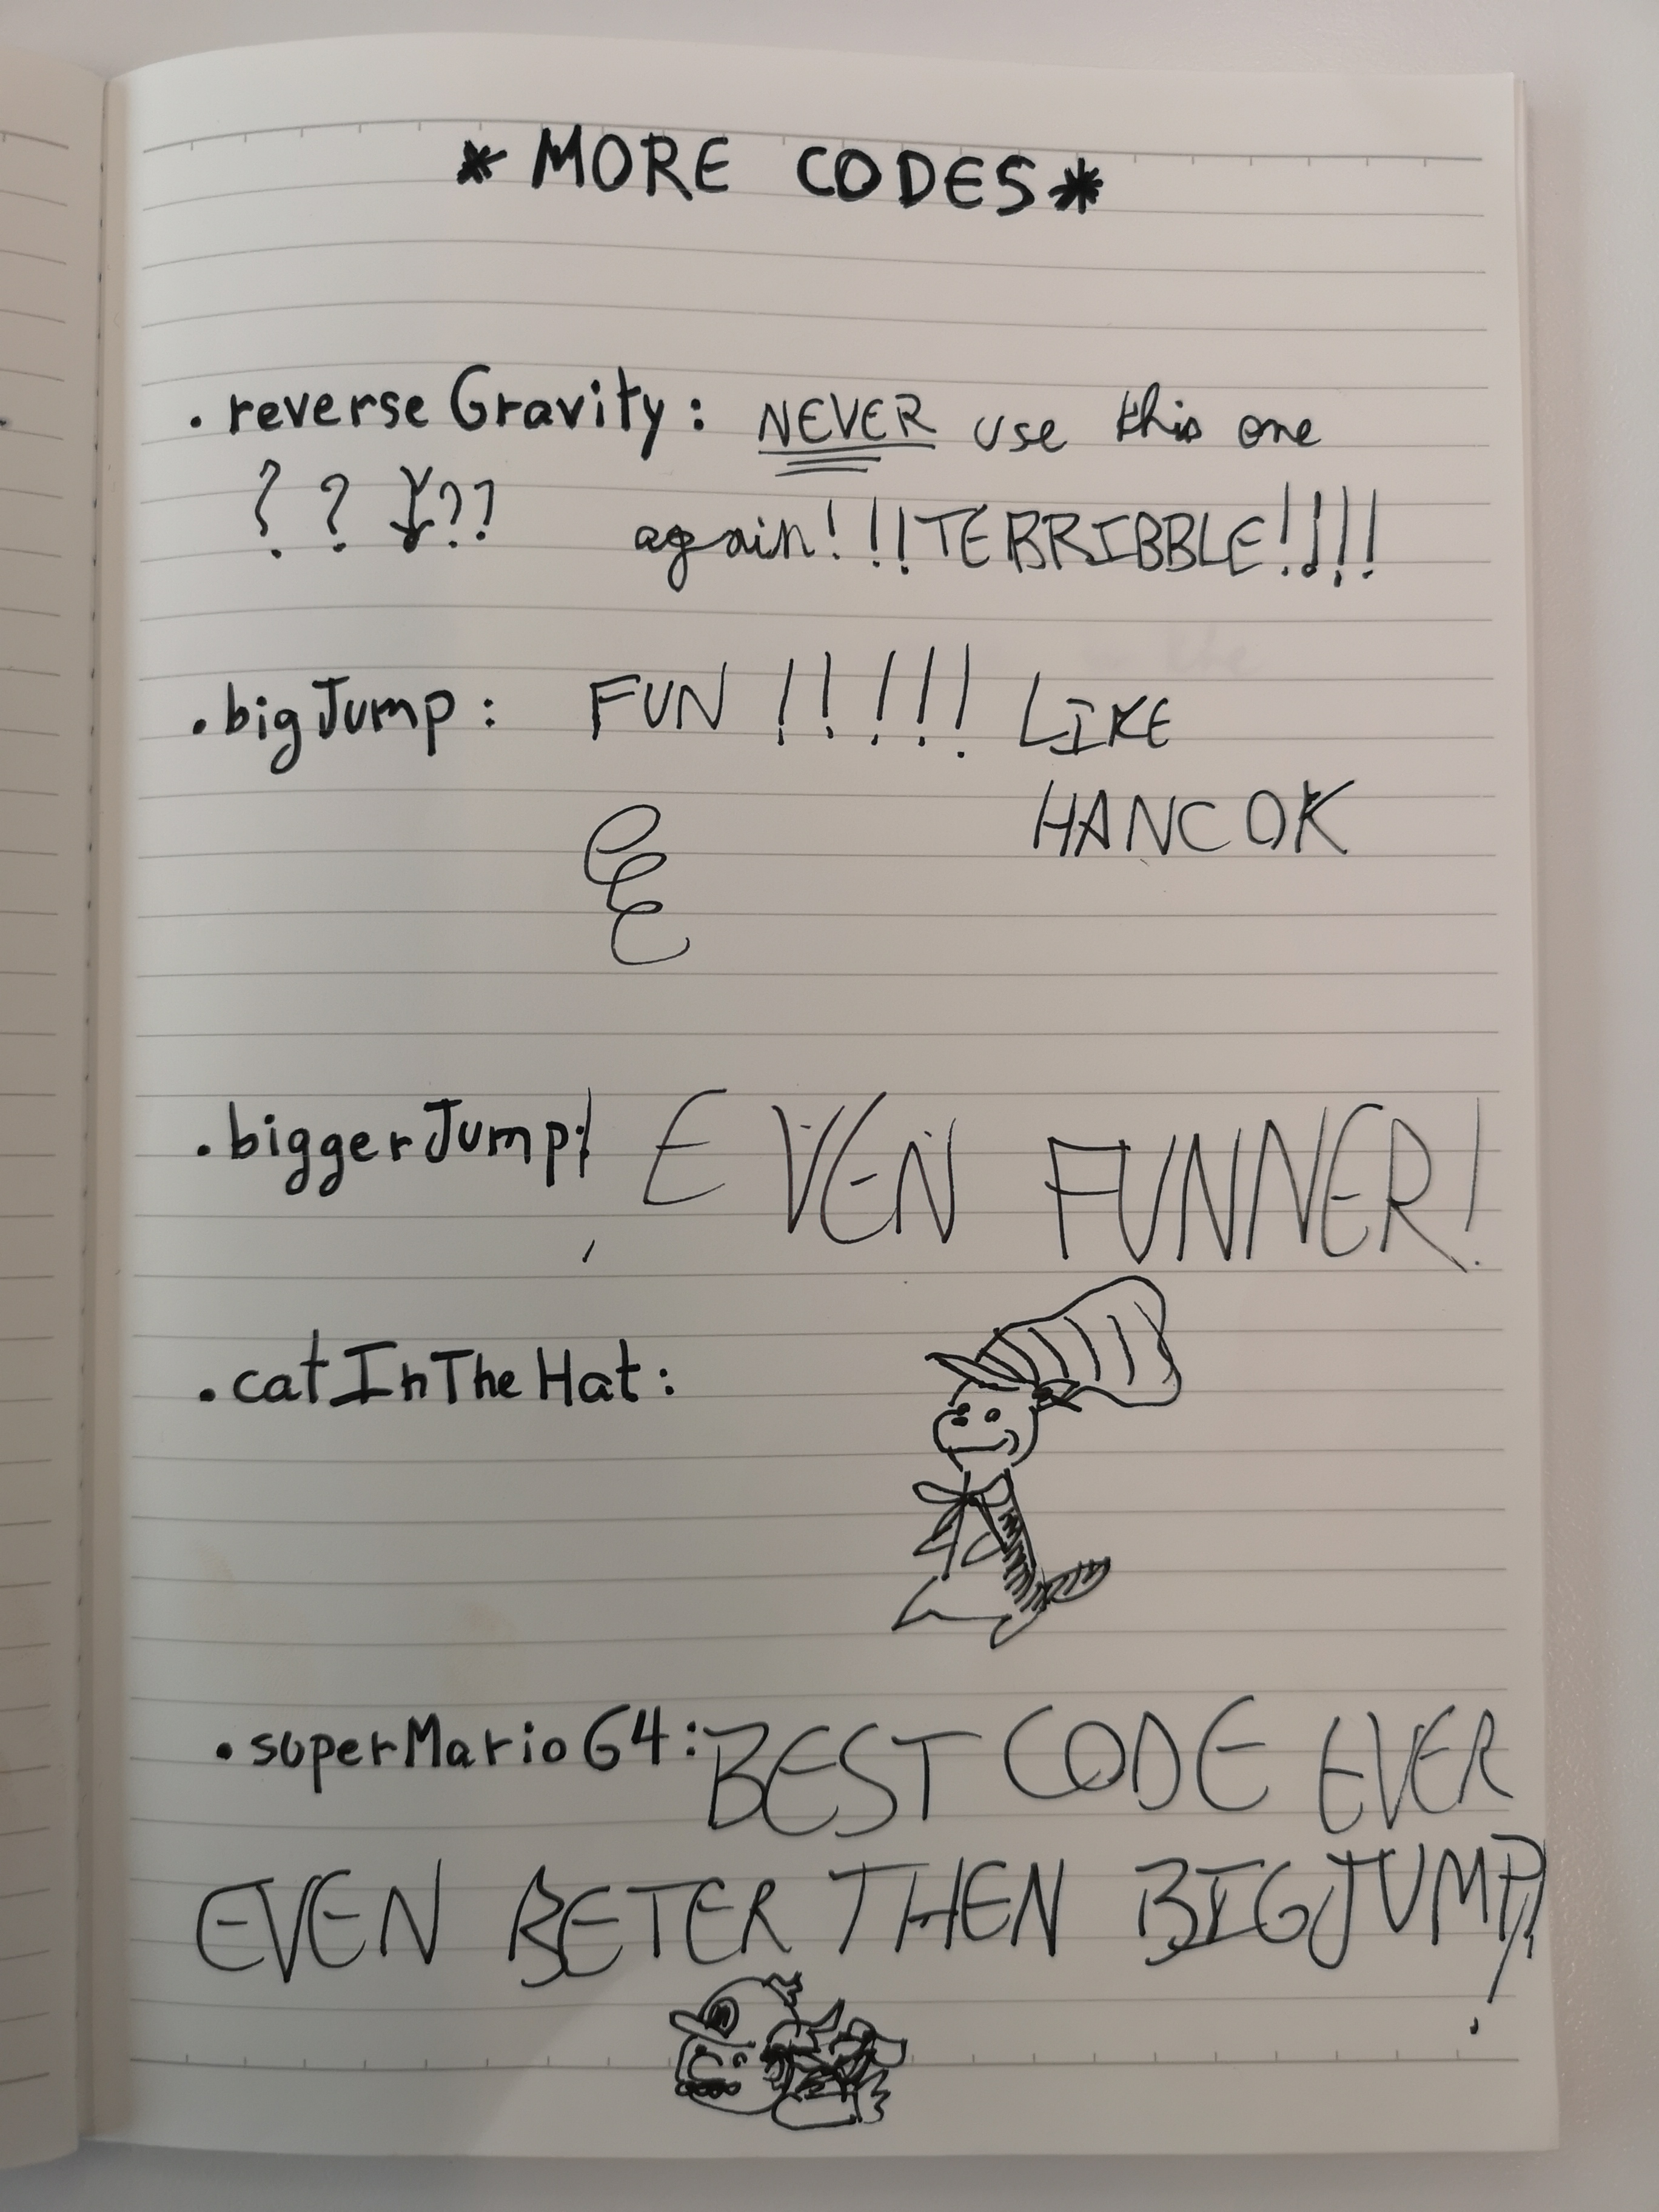 * MORE CODES *
. reverseGravity: NEVER use this one
? ? ??
again!!!TERRIBBLE!!!!
. bigJump: FUN !!!!! LIKE
HANCOK
. biggerJump: EVEN FUNNER!
. catInTheHat:
. superMario64: BEST CODE EVER
EVEN BETER THEN BIGJUMP!